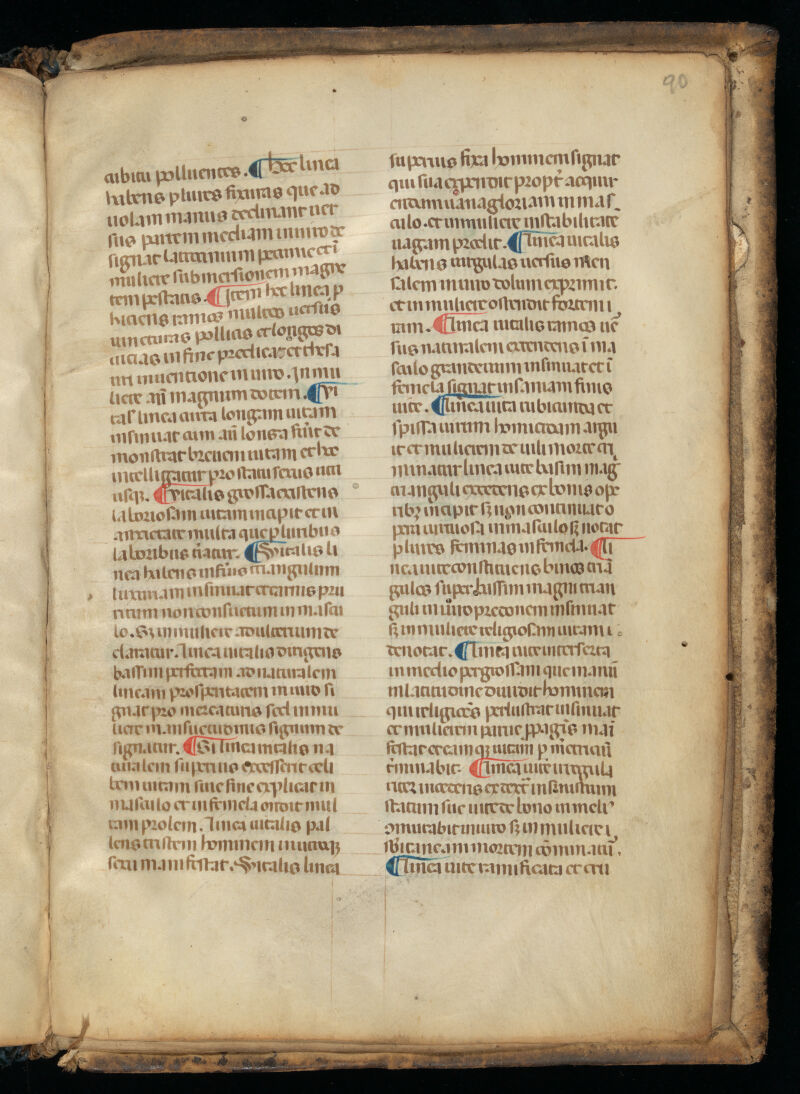 90
cubitu polluentes. ¶ hec linea
habens plures fixuras que ad
uolam manus declinant uer
sus partem mediam in uiro de
signat lacrimium
muliere submersionem magne
tempestatis. ¶ Item hec linea p
hiciens ramos multos uersus
iuncturas pollicis et longos di
uicias in fine predicat et thesa
uri inuentione in uiro. In mu
liere aũ magnum dotem. ¶ Vi
talis linea longam uitam
insinuat cum aũ longa fuit de
monstrat breuem uitam et hec
intelligatur pro statu sexus utri
usq̃. ¶ Vitalis grossa existens
laboriosam uitam incipit et in
anxietate multa que pluribus
laboribus. ¶ Vitalis li
nea habens triangulum
luxuriam insinuat et carnis pru
ritum non consuetum in mascu
lo. Sʒ in muliere adulterium de
claratur. Linea uitalis dirigens
bassim perfectam ad naturalem
lineam prosperitatem in uiro si
gnat pro mercaturis sed in mu
liere mansuetudinis signum de
signatur. ¶ Si linea uitalis na
turalem superius excesserit celi
bem uitam siue fine explicat in
masculo et in femela mul
tam prolem. Linea uitalis pal
lens tristem hominem in utroqʒ
sexu manifestat. Vitalis linea
superius fixa hominem signat
qui sua expendit propt̃ acquir
endam uanagloriam in mas
culo. et in muliere instabilitate
uagam predit. ¶ Linea uitalis
habens uirgulas uersus men
salem in uiro dolum exprimit.
et in muliere ostendit fortem i
ram. ¶ Linea uitalis ramos ue᷒
sus naturalem extendens ĩ ma
sculo grande uium insinuat et ĩ
femela signat insaniam finis
uite. ¶ Linea uita rubicunda et
spissa uirum homicidam argu
it et mulierem de uili morte cri
minatur linea uite basim mag
trianguli excedens ex bonis ope
ribʒ incipit sʒ non continuat o
pera uirtuosa in masculo sʒ notat
plures feminas in femela. ¶ Li
nea uite constituens binos triã
gulos super bassim magni trian
guli in uiro preconem insinuat
sʒ in muliere religiosam uitam i
denotat. ¶ Linea uite inserta
in medio pergrossam que manũ
in latitudine diuidit hominem
qui religiones perlustrat insinuat
et mulierem mãi
festat et eam qʒ uitam p meretricũ
t̃minabit. ¶ Linea uite irregula
riter incedens ex dext̃ in sinistrum
statum sue uite de bono in meli᷒
omutabit in uiro sʒ in muliere i
sbitaneam mortem cõminatũ.
¶ Linea uite ramificata et cru